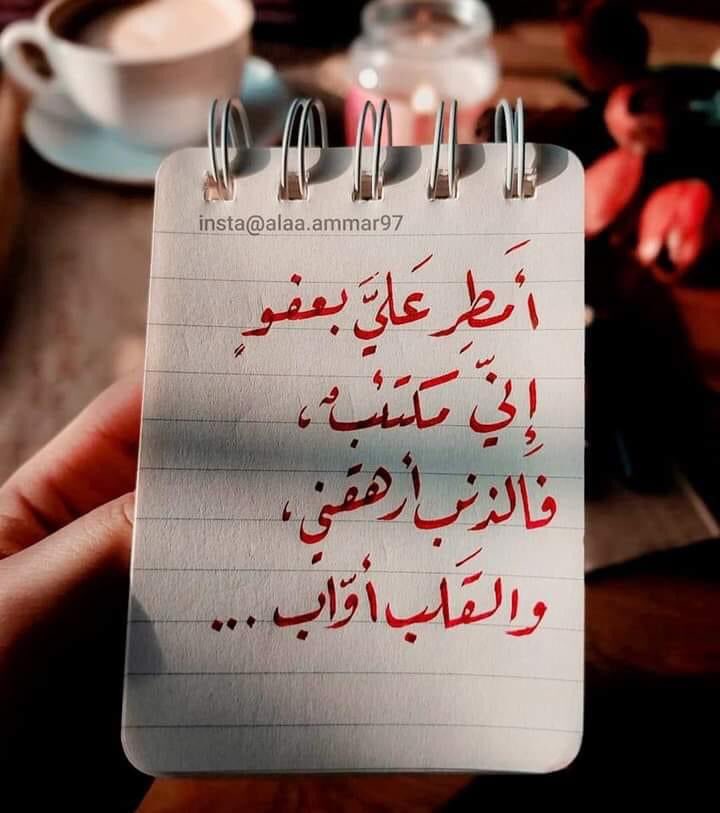 insta@alaa.ammar97
أَمطِر عَليَّ بعفوٍ
إِنّي مكتئبٌ،
فالذنب أرهقني،
والقَلب أوّاب ...